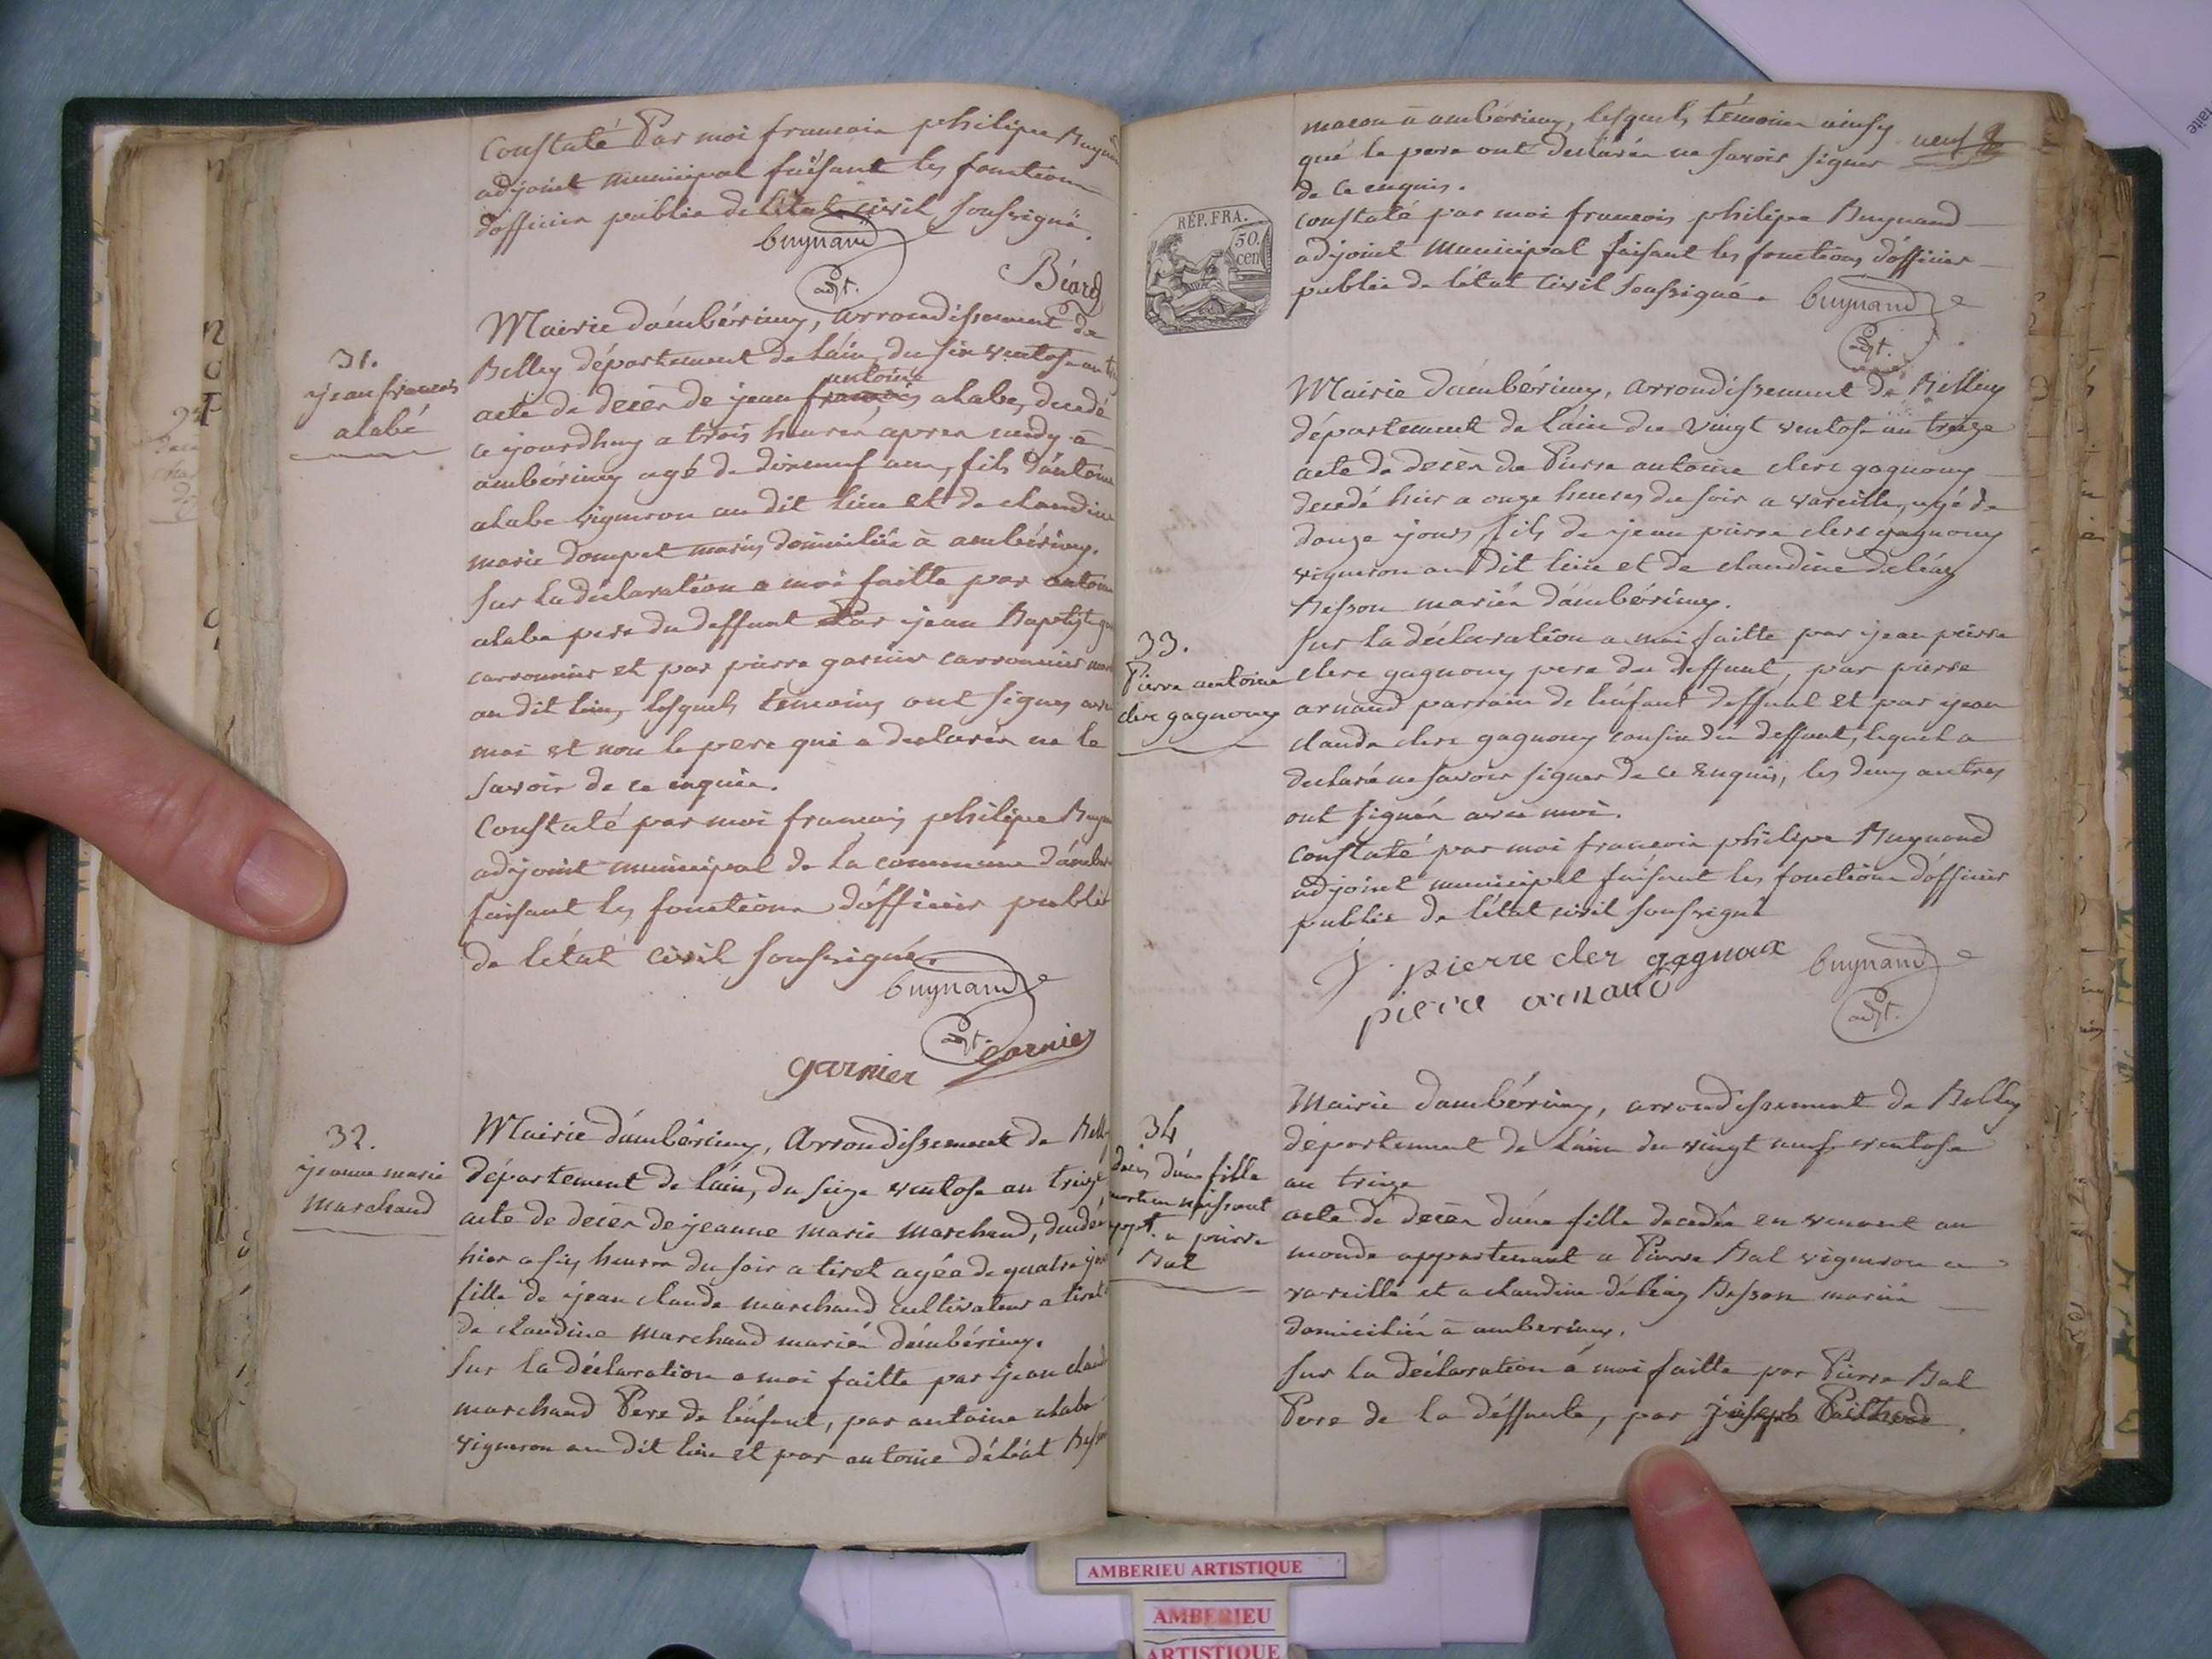 Constaté Par moi francois philipe Buynand
adjoint municipal faisant les fonctions
d'officier public de l'état civil soussigné.
buynand
adjt.
Béard
31.
jean francois
alabé
Mairie d'ambérieuy, arrondissement de
Belley département de l'ain, du six ventose an
acte de decès de jean francois antoine alabe, decedé
a jourdhuy a trois heures apres midy a
ambérieuy agé de dixneuf ans, fils d'antoine
alabe vigneron au dit lieu et de claudine
marie dompet mariés domiciliés à ambérieuy.
Sur la déclaration a moi faitte par antoine
alabe pere du deffunt Par jean Baptiste
carronnier et par pierre garnier carronnier
au dit lieu, lesquels temoins ont signés avec
moi et non le pere qui a declarés ne le
savoir de ce enquis.
Constaté par moi francois philipe
adjoint municipal de la commune
faisant les fonctions d'officier public
de l'état civil soussigné.
buynand
adjt.
garnier garnier
32.
jeanne marie
marchand
Mairie d'ambérieuy, Arrondissement de
département de l'ain, du seize ventose an treize
acte de decès de jeanne marie marchand, decedée
hier a six heures du soir a tiret agée de quatre
fille de jean claude marchand cultivateur a tiret
de claudine marchand mariés d'ambérieuy.
Sur la déclaration a moi faitte par jean claude
marchand Pere de l'enfant, par antoine alabe
vigneron au dit lieu et par antoine déléat
macon a ambérieuy, lesquels témoins ainsy
que le pere ont déclarés ne savoir signer
de ce enquis.
constaté par moi francois philipe Buynand
adjoint municipal faisant les fonctions d'officier
public de l'état civil soussigné.
buynand
adjt.
RÉP. FRA.
50.
cen
33.
Pierre antoine
clerc gagnoux
Mairie d'ambérieuy, arrondissement de Belley
département de l'ain du vingt ventose an treize
acte de decès de Pierre antoine clerc gagnoux
decedé hier a onze heures du soir a vareille, agé de
douze jours, fils de jean pierre clerc gagnoux
vigneron au dit lieu et de claudine deléaz
Besson mariés d'ambérieuy.
Sur la déclaration a moi faitte par jean pierre
clerc gagnoux pere du deffunt, par pierre
arnaud parrain de l'enfant deffunt et par jean
claude clerc gagnoux cousin du deffunt, lequel a
declaré ne savoir signer de ce Enquis, les deux autres
ont signés avec moi.
constaté par moi francois philipe Buynand
adjoint municipal faisant les fonctions d'officier
public de l'état civil soussigné
J. pierre cler gagnoux
pierre arnaud
buynand
adjt.
34
decès d'une fille
mort en naissant
appt. a pierre
Bal
Mairie d'ambérieuy, arrondissement de Belley
département de l'ain du vingt neuf ventose
an treize
acte de decès d'une fille decedée en venant au
monde appartenant a Pierre Bal vigneron a
vareille et a claudine déléaz Besson mariés
domiciliés à amberieuy.
Sur la déclaration à moi faitte par Pierre Bal
Pere de la déffunte, par joseph
AMBERIEU ARTISTIQUE
AMBERIEU
ARTISTIQUE